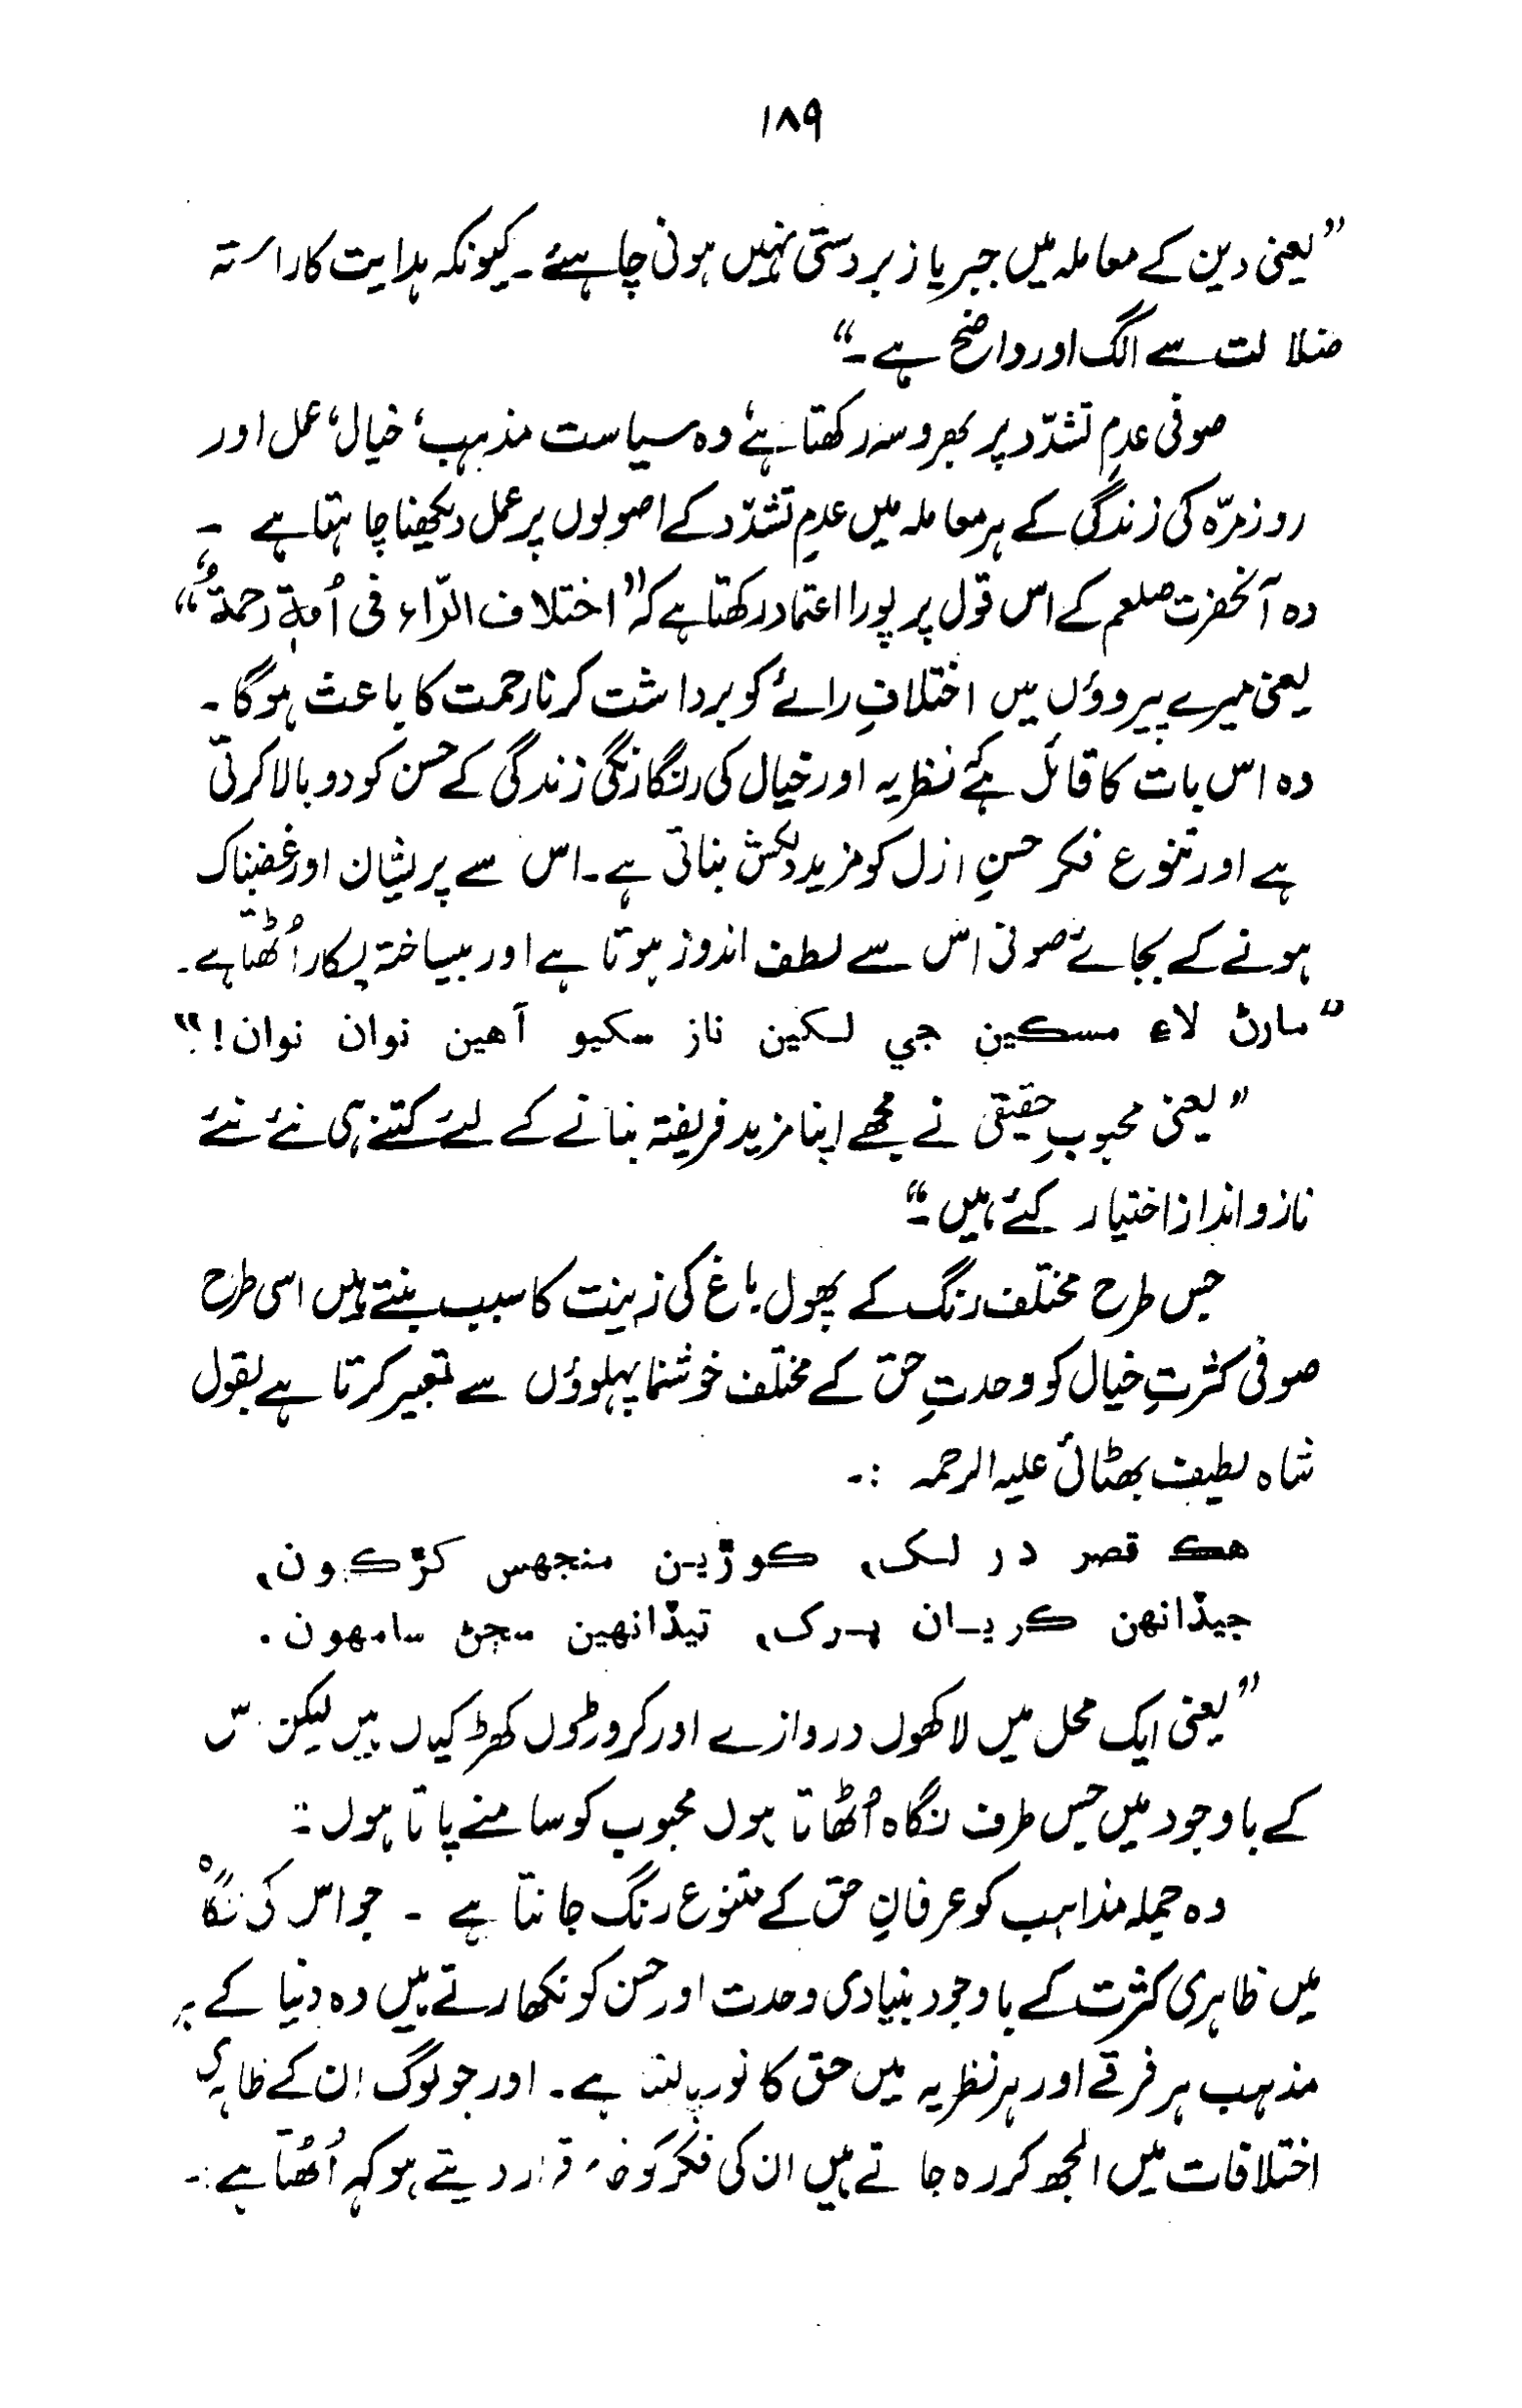 ۱۸۹
”یعنی دین کے معاملہ میں جبر یا زبردستی نہیں ہونی چاہئے۔ کیونکہ ہدایت کا راستہ
ضلالت سے الگ اور واضح ہے۔“
صوفی عدمِ تشدّد پر بھروسہ رکھتا ہے، وہ سیاست مذہب، خیال، عمل اور
روزمرّہ کی زندگی کے ہر معاملہ میں عدمِ تشدّد کے اصولوں پر عمل دیکھنا چاہتا ہے ۔
وہ آنحضرت صلعم کے اس قول پر پورا اعتماد رکھتا ہے کہ ”اختلاف الرّاء فی اُمۃٖ رحمۃُ“،
یعنی میرے پیروؤں میں اختلافِ رائے کو برداشت کرنا رحمت کا باعث ہوگا ۔
وہ اس بات کا قائل ہے نظریہ اور خیال کی رنگا رنگی زندگی کے حسن کو دوبالا کرتی
ہے اور تنوع فکر حسنِ ازل کو مزید دلکش بناتی ہے۔ اس سے پریشان اور غضبناک
ہونے کے بجائے صوفی اس سے لطف اندوز ہوتا ہے اور بیساختہ پکار اُٹھتا ہے۔
”مارڻ لاءِ مسڪين جي لکين ناز سکيو آھين نوان نوان!“
”یعنی محبوبِ حقیقی نے مجھے اپنا مزید فریفتہ بنانے کے لئے کتنے ہی نئے نئے
ناز و انداز اختیار کئے ہیں۔“
جس طرح مختلف رنگ کے پھول باغ کی زینت کا سبب بنتے ہیں اسی طرح
صوفی کثرتِ خیال کو وحدتِ حق کے مختلف خوشنما پہلوؤں سے تعبیر کرتا ہے بقول
شاہ لطیف بھٹائی علیہ الرحمہ :۔
هڪ قصر در لک، ڪوڙين منجهس کڙڪيون،
جيڏانهن ڪريان پرک، تيڏانهين سڄڻ سامهون.
”یعنی ایک محل میں لاکھوں دروازے اور کروڑوں کھڑکیاں ہیں لیکن
کے باوجود میں جس طرف نگاہ اُٹھاتا ہوں محبوب کو سامنے پاتا ہوں۔“
وہ جملہ مذاہب کو عرفانِ حق کے متنوع رنگ جانتا ہے ۔ جو اس کی نگاہ
میں ظاہری کثرت کے باوجود بنیادی وحدت اور حسن کو نکھارتے ہیں وہ دنیا کے ہر
مذہب ہر فرقے اور ہر نظریہ میں حق کا نور پاتا ہے۔ اور جو لوگ ان کے ظاہری
اختلافات میں الجھ کر رہ جاتے ہیں ان کی فکر کو قرار دیتے ہو کہہ اُٹھتا ہے:۔